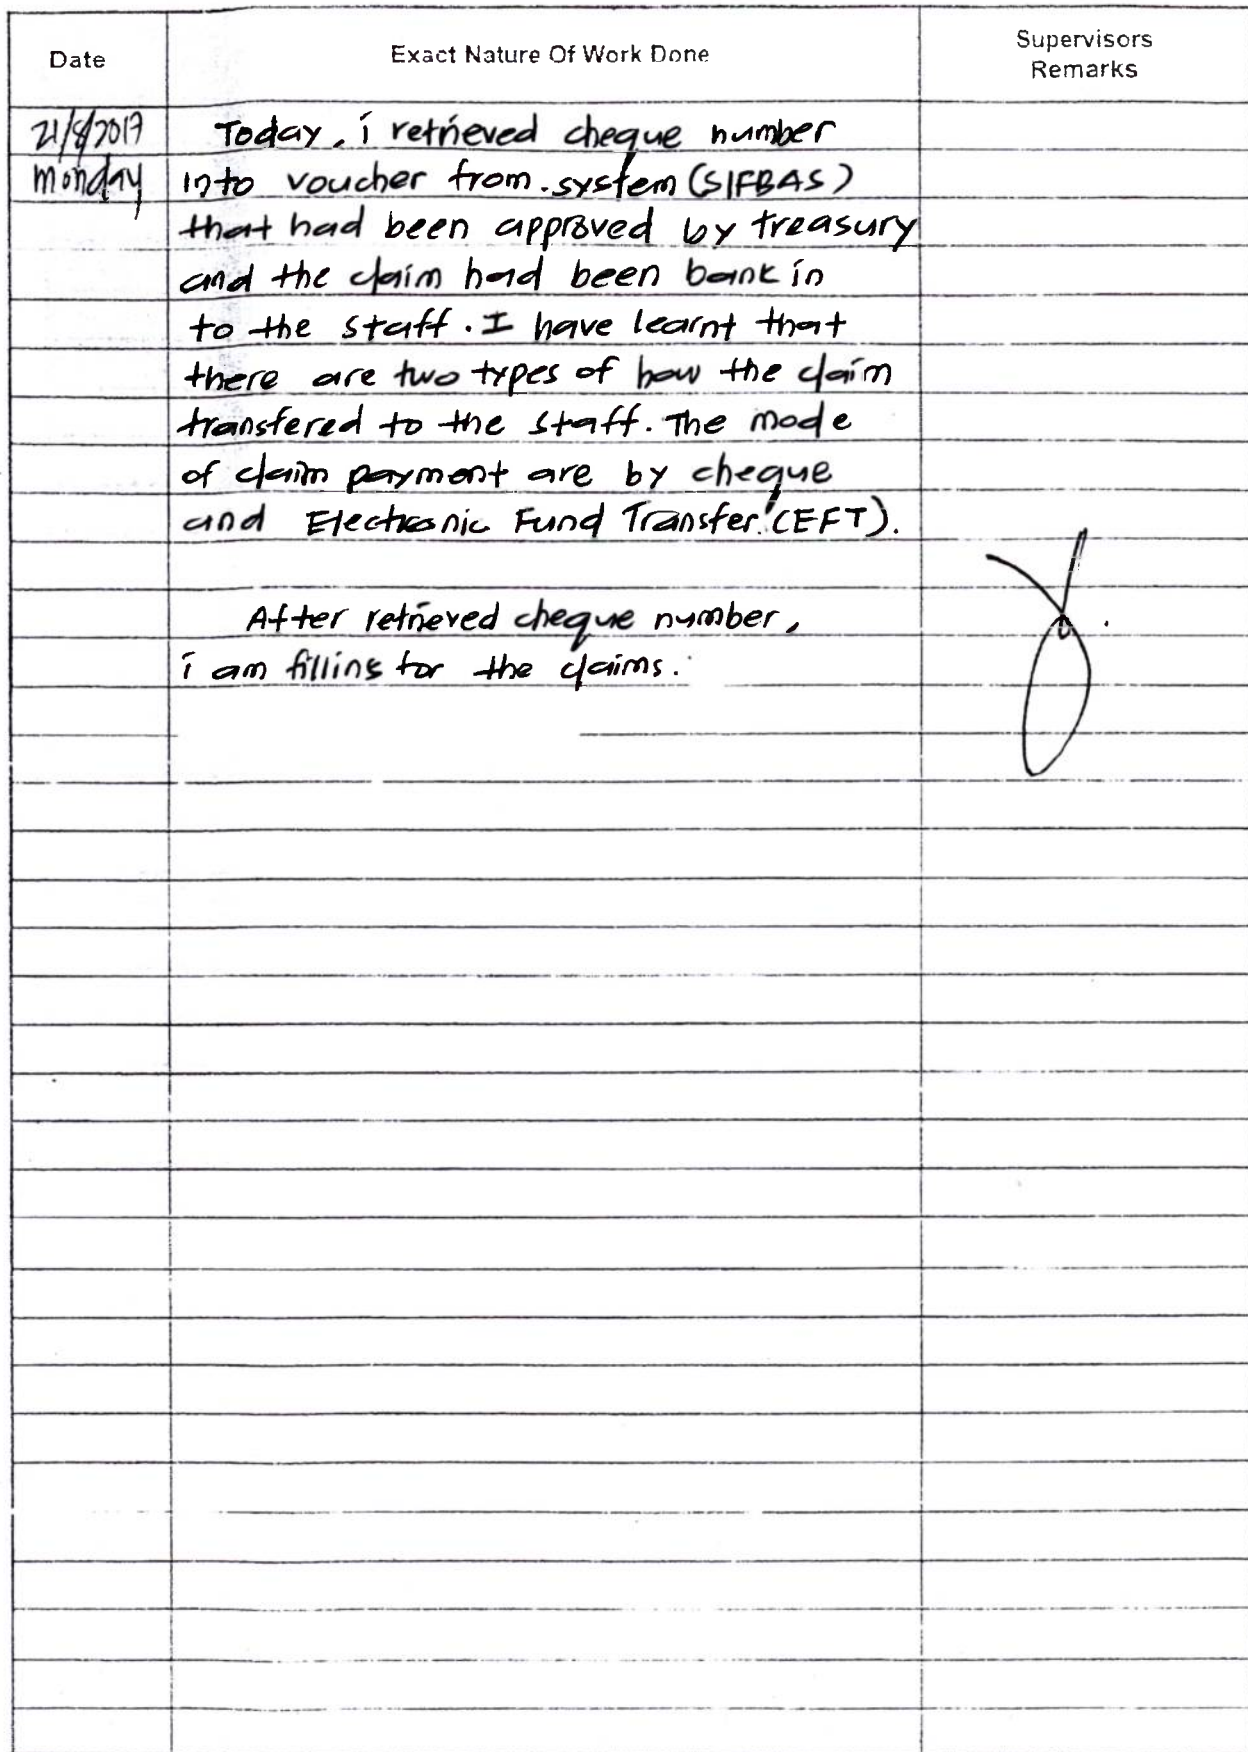 Date Exact Nature Of Work Done Supervisors
Remarks
21/8/2017 Today, i retrieved cheque number
monday into voucher from system (SIFBAS)
that had been approved by treasury
and the claim had been bank in
to the staff. I have learnt that
there are two types of how the claim
transfered to the staff. The mode
of claim payment are by cheque
and Electronic Fund Transfer (EFT).
After retrieved cheque number,
i am filling for the claims.